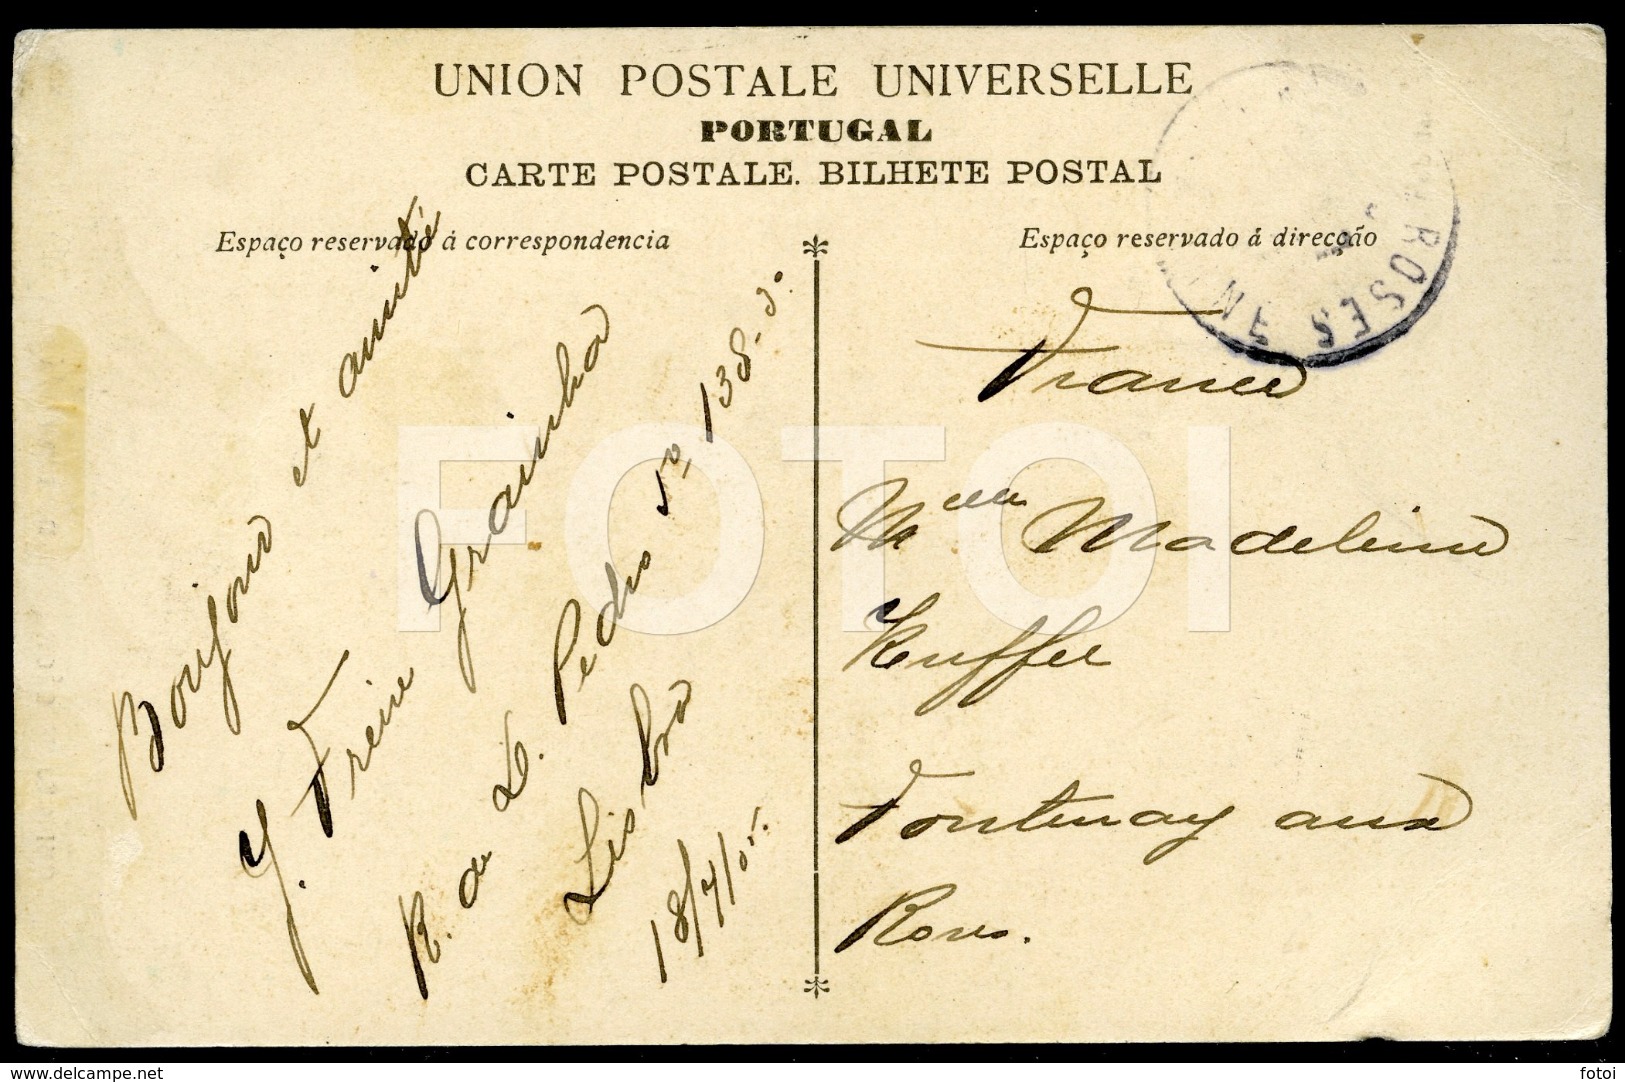 UNION POSTALE UNIVERSELLE
PORTUGAL
CARTE POSTALE. BILHETE POSTAL
Espaço reservado á correspondencia
Bonjour et amitié
J. Freire Grainha
R. de D. Pedro Vº, 138-3º
Lisboa
18/7/05.
Espaço reservado á direcção
ROSES
NE
France
Melle Madeleine
Kuffer
Fontenay aux
Roses.
FOTOI
www.delcampe.net
fotoi